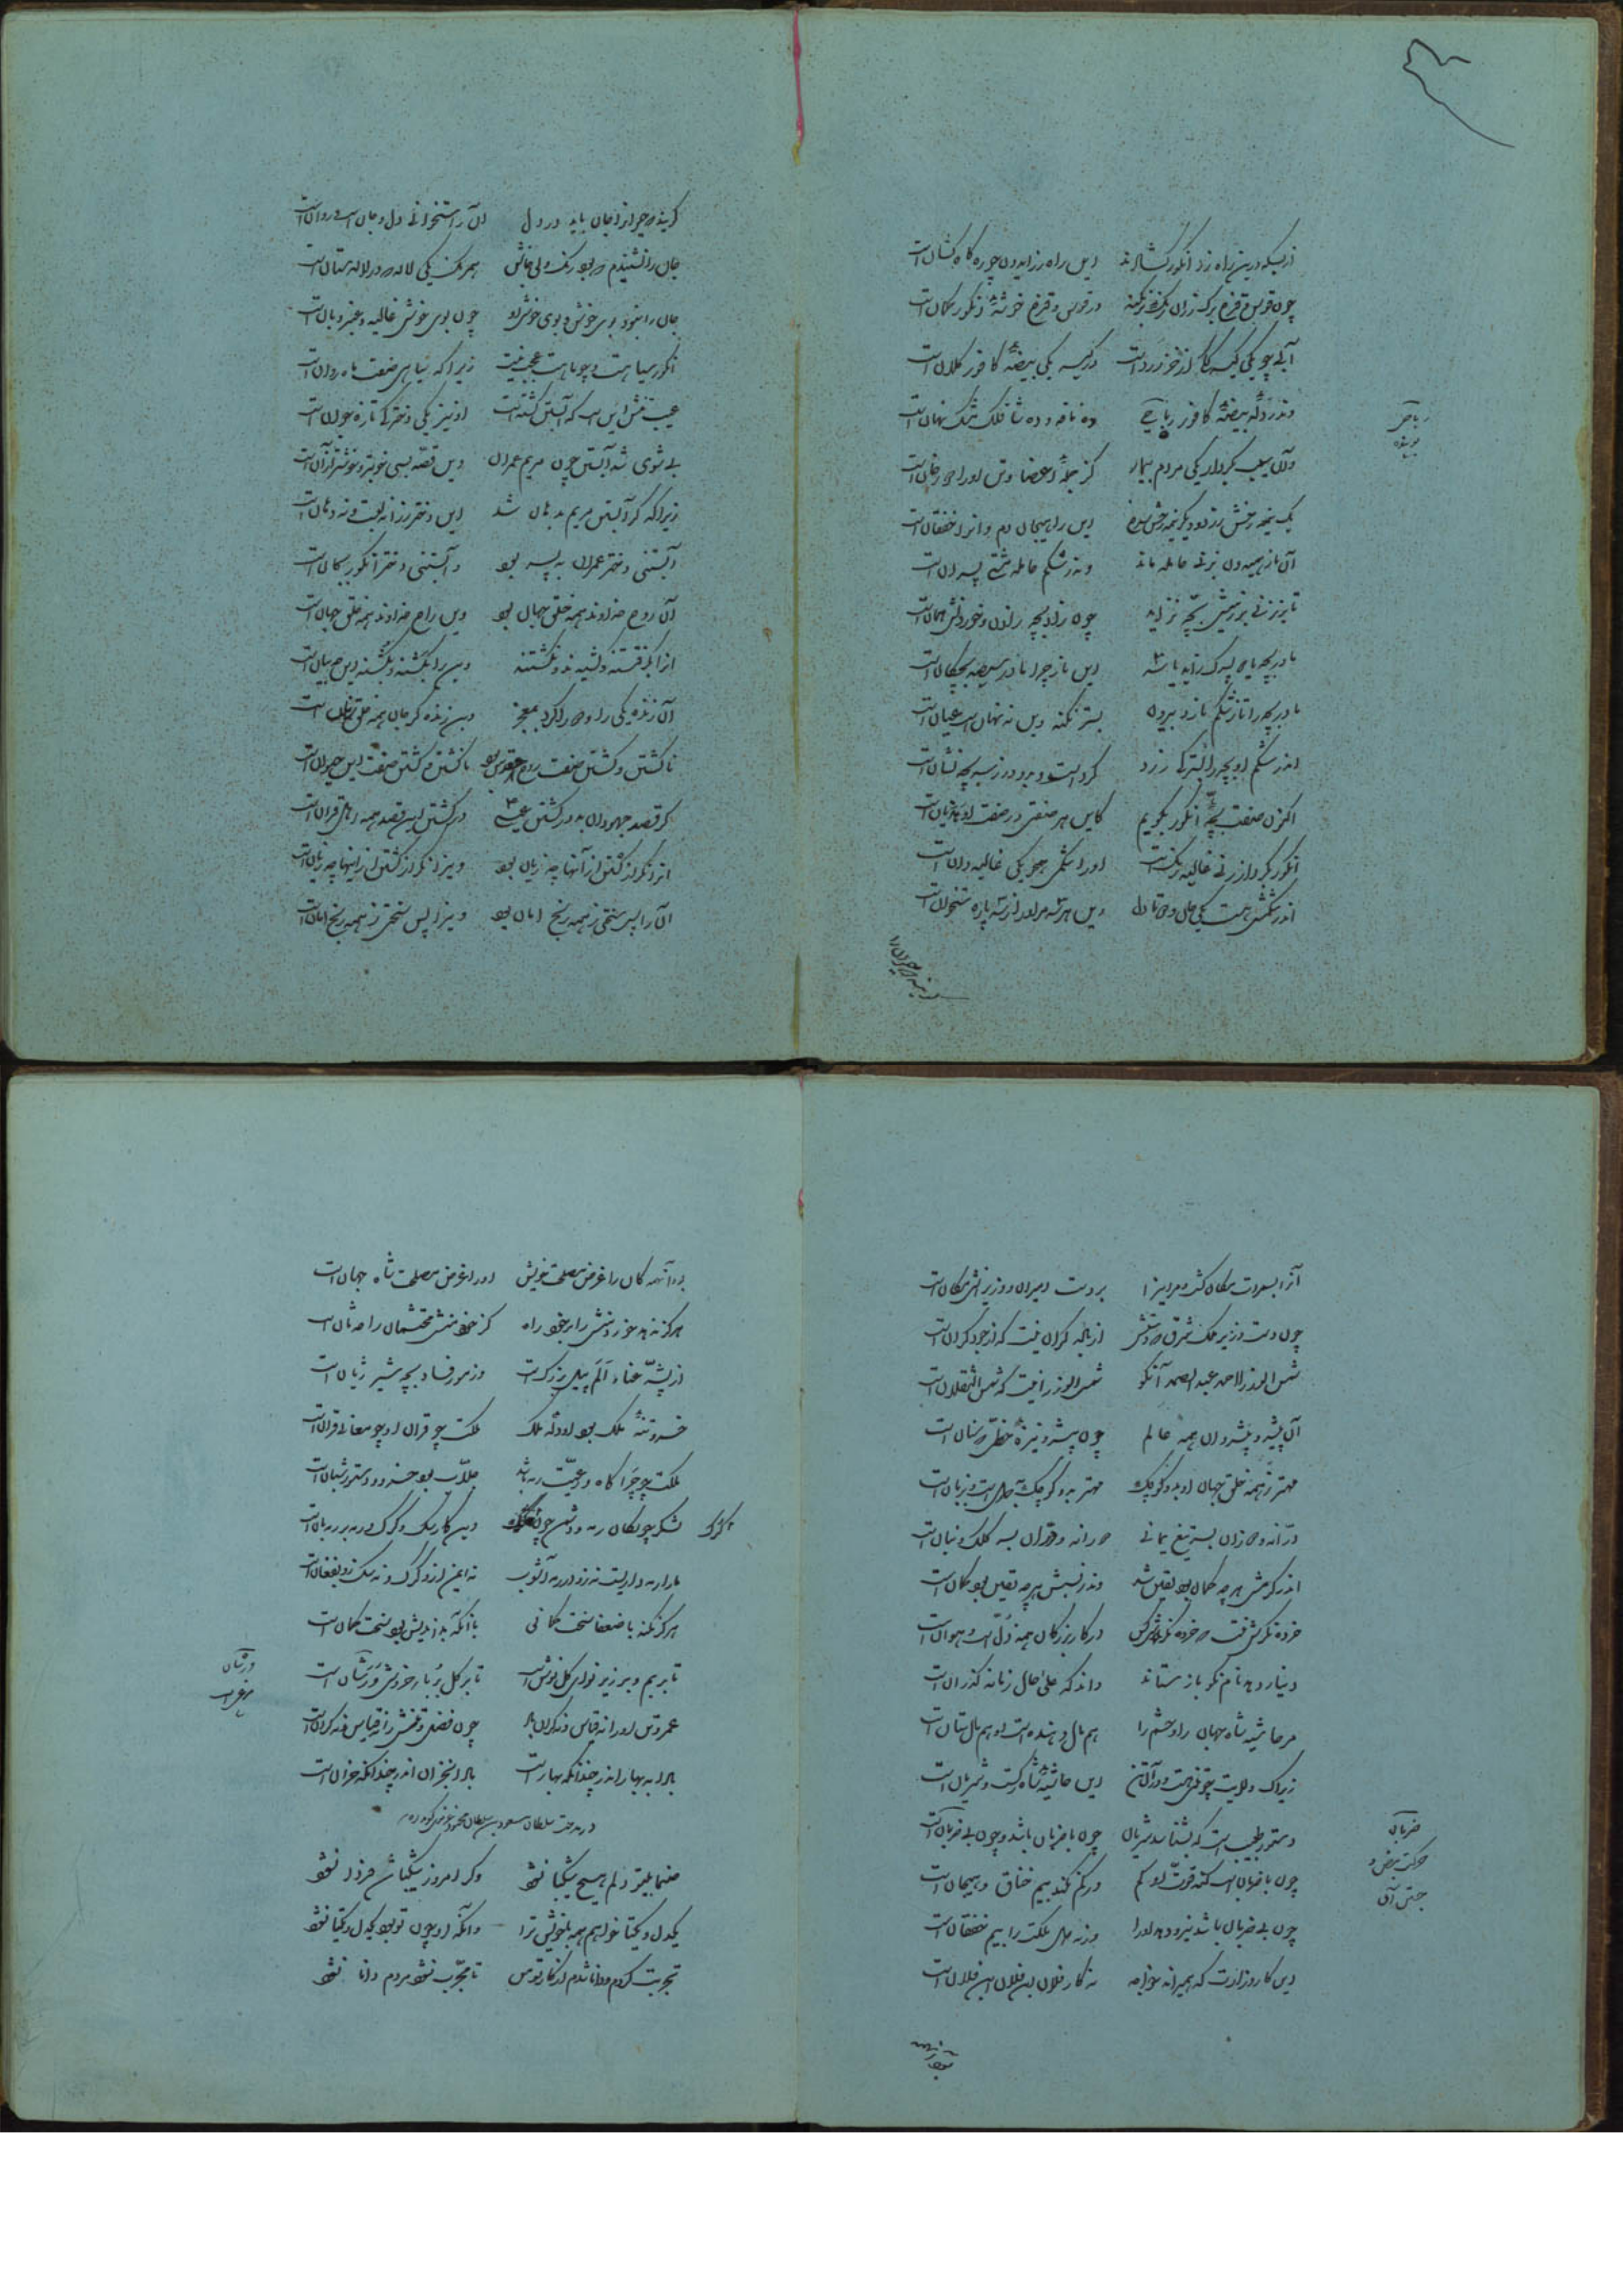 از بسکه درین راه رز انگور کشانند این راه رز ایدون چو ره کاه‌کشان است
چون قوس قزح برگ رزان رنگ برنگند در قوس و قزح خوشهٔ انگور کمان است
آبی چو یکی کیسهٔ از خز زرد است در کیسه یکی بیضهٔ کافور کلان است
وندر دل آن بیضهٔ کافور ریاحی ده نافه و ده شاخگک مشک نهان است
ریاحی
وان سیب بکردار یکی مردم بیمار کز جملهٔ اعضا و تن او را دو رخان است
یک نیمه رخش زرد و دگر نیمه رخش سرخ این را هیجان دم و آنرا خفقان است
آن نار همیدون بزنی حامله ماند وندر شکم حامله مشتی پسران است
تا بر نزنی بر زمیش بچه نزاید چون زاد بچه زادن و خوردنش همان است
مادر بچه یا دو پسرک زاید یا سه این نار چرا مادر سیصد بچگان است
مادر بچه را تا ز شکم نارد بیرون بستر نکند وین نه نهان است عیان است
اندر شکم او بچه را بسترکی زرد کرد است و بدو در ز سر بچه نشان است
اکنون صفت بچهٔ انگور بگویم کاین هر صفتی در صفت او هذیان است
انگور بکردار زنی غالیه رنگ است او را شکمی همچو یکی غالیه دان است
اندر شکمش هست یکی جان و سه تا دل وین هر سه دل او را ز سه پاره ستخوان است
گویند که حیوان را جان باید در دل آن را ستخوانی دل و جان است و روان است
جان را نشنیدم که بود رنگ ولی جانش همرنگ یکی لاله که در لاله ستان است
جان را نبود بوی خوش و بوی خوش او چون بوی خوش غالیه و عنبر و بان است
انگور سیاه است و چو ماه است عجب نیست زیرا که سیاهی صفت ماه روان است
عیبیش جز این نیست که آبستن گشته است او نیز یکی دخترکی تازه جوان است
بی شوی شد آبستن چون مریم عمران وین قصه بسی خوبتر و خوشتر از آن است
زیرا که گر آبستن مریم بدهان شد این دختر رز را نه لب است و نه دهان است
آبستنی دختر عمران به پسر بود و آبستنی دختر انگور بجان است
آن روح خداوند همه خلق جهان بود وین راح خداوند همه خلق جهان است
آنرا بگرفتند و کشیدند و نکشتند وین را بکشند و بکشند این چه بیان است
آن زنده یکی را و دو را کرد بمعجز وین زنده گر جان همه خلق زمان است
ناکشتن و کشتن صفت روح قدس بود ناکشتن و کشتن صفت این حیوان است
گر قصد جهودان بد در کشتن عیسی در کشتن این قصد همه اهل قران است
آنرا نگر از کشتن از آنها چه زیان بود وین را نگر از کشتن ازینها چه زیان است
آن را پس سختی ز همه رنج امان بود وین را پس سختی ز همه رنج امان است
آنرا بسماوات مکان گشت و مر این را بر دست امیران و وزیرانش مکان است
چون دست وزیر ملک شرق که دستش از باده گران نیست که از جود گران است
شمس الوزرا احمد عبدالصمد آنکو شمس الوزرا نیست که شمس الثقلان است
آن پیشرو پیشروان همه عالم چون پیشرو نیزهٔ خطی که سنان است
مهتر ز همه خلق جهان او بدو کوچک مهتر بدو کوچک بدل است و بزبان است
در آنند و گزان بستر تیغ یمانی درانه و بران بسر کلک و بنان است
اندر کرمش هر چه گمان بود یقین شد وندر نسبش هر چه یقین بود گمان است
خرده نگرش نیست که خرده نگرشی کس در کار بزرگان همه ذل است و هوان است
دینار دهد نام نکو باز ستاند داند که علی حال زمانه گذران است
مر حاشیهٔ شاه جهان را و حشم را هم مال دهنده است او هم مال ستان است
زیرا که ولایت چو تنی هست و در آن تن این حاشیهٔ شاه رگ است و شریان است
دستور طبیب است که بشناسد شریان چون با ضربان باشد و چون بی ضربان است
ضربان حرکت نبض و جستن آن
چون با ضربان است کند قوت او کم ور کم نکند بیم خناق و هیجان است
چون بی ضربان باشد نیرو دهد او را ورنه دل ملکت را بیم خفقان است
این کار وزارت که همیراند خواجه نه کار فلان ابن فلان ابن فلان است
بود آنهمه کان را غرض مصلحت خویش او را غرض مصلحت شاه جهان است
هرگز ندهد خرد منش را بر خود راه کز خرد منش محتشمان را حدثان است
از پشه عنا و الم پیل بزرگ است وز مور فساد بچهٔ شیر ژیان است
خسرو تنهٔ ملک بود او دل ملک ملکت چو قران او چو معانی قران است
ملکت چو چراگاه و رعیت رمه باشد جلاب بود خسرو و دستور شبان است
لشکر چو سگان رمه و دشمن چون گرگ وین کار سگ و گرگ و رمه با رمه‌بان است
گرگ
ما را رمه داریست نه زو در رمه آشوب نه ایمن ازو گرگ و نه سگ زو بفغان است
هرگز نکند با ضعفا سخت کمانی با آنکه بداندیش بود سخت کمان است
تا بر بم و بر زیر نوای گل نوش است تا بر گل بربار خروش ورشان است
ورشان مرغی است
عمر و تن او را نه قیاس و نه کران باد چون فضل و تفضلش نه قیاس و نه کران است
بادا به بهار اندر چندانکه بهار است بادا بخزان اندر چندانکه خزان است
در مدحت سلطان مسعود بن سلطان محمود غزنوی گوید
صنما بیتو دلم هیچ شکیبا نشود وگر امروز شکیبا شد فردا نشود
یکدل و یکتا خواهم همه با خویش ترا وآنگه او چون تو بود یکدل و یکتا نشود
تجربت کردم و دانا شدم از کار تو من تا مجرب نشود مردم دانا نشود